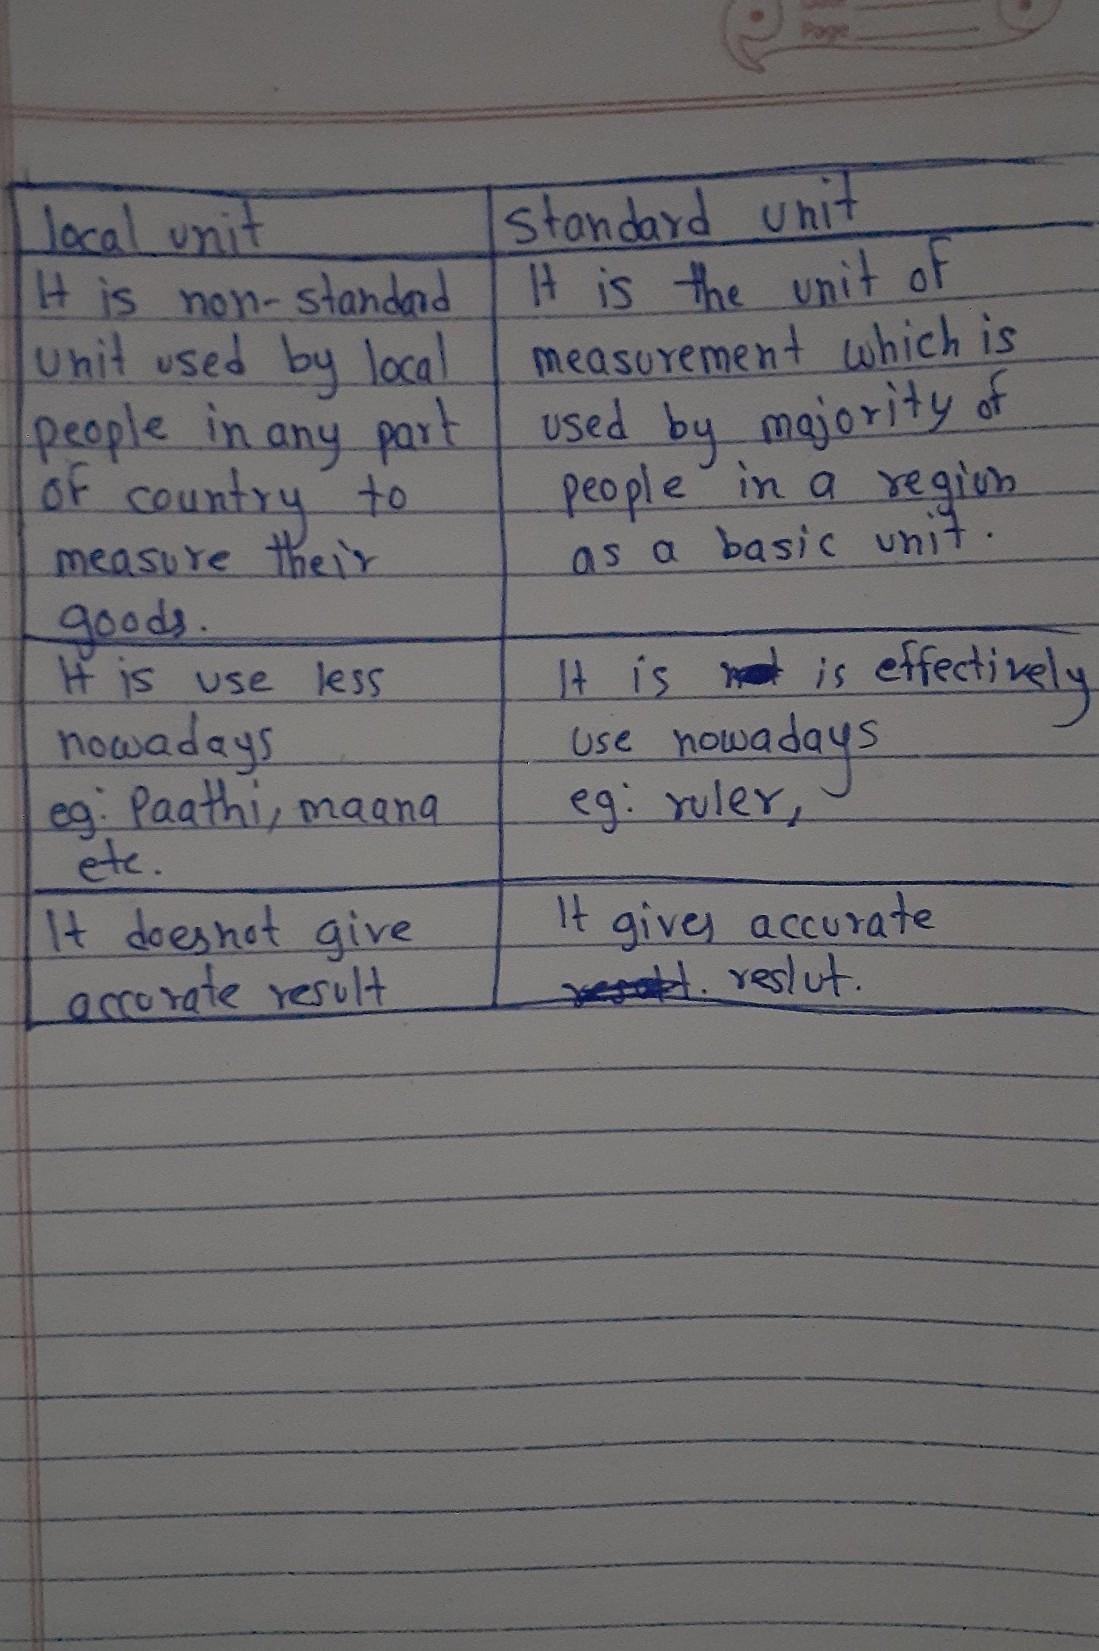 Page
local unit
Standard unit
It is non-standard
unit used by local
people in any part
of country to
measure their
goods.
It is the unit of
measurement which is
used by majority of
people in a region
as a basic unit.
It is use less
nowadays
eg: Paathi, maana
etc.
It is is effectively
use nowadays
eg: ruler,
It doesnot give
accurate result
It gives accurate
reslut.